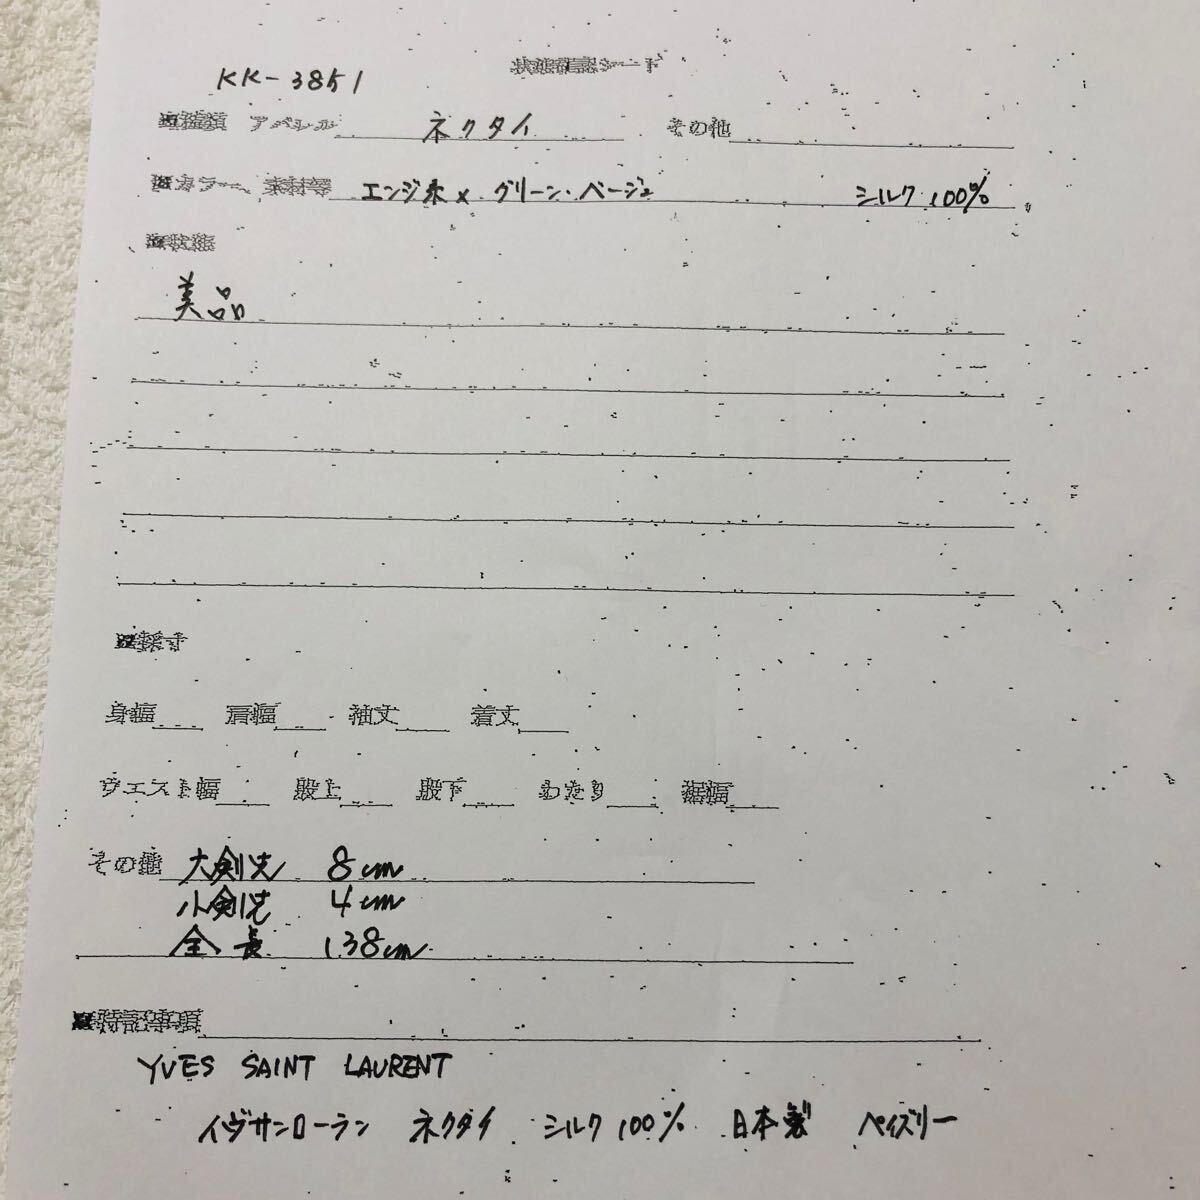 状態確認シート
KK-3851
■種類 アパレル ネクタイ その他
■カラー、素材等 エンジ系×グリーン・ベージュ シルク100%
■状態
美品
■採寸
身幅 肩幅 袖丈 着丈
ウエスト幅 股上 股下 わたり 裾幅
その他 大剣先 8cm
小剣先 4cm
全長 138cm
■特記事項
YVES SAINT LAURENT
イヴサンローラン ネクタイ シルク100% 日本製 ペイズリー